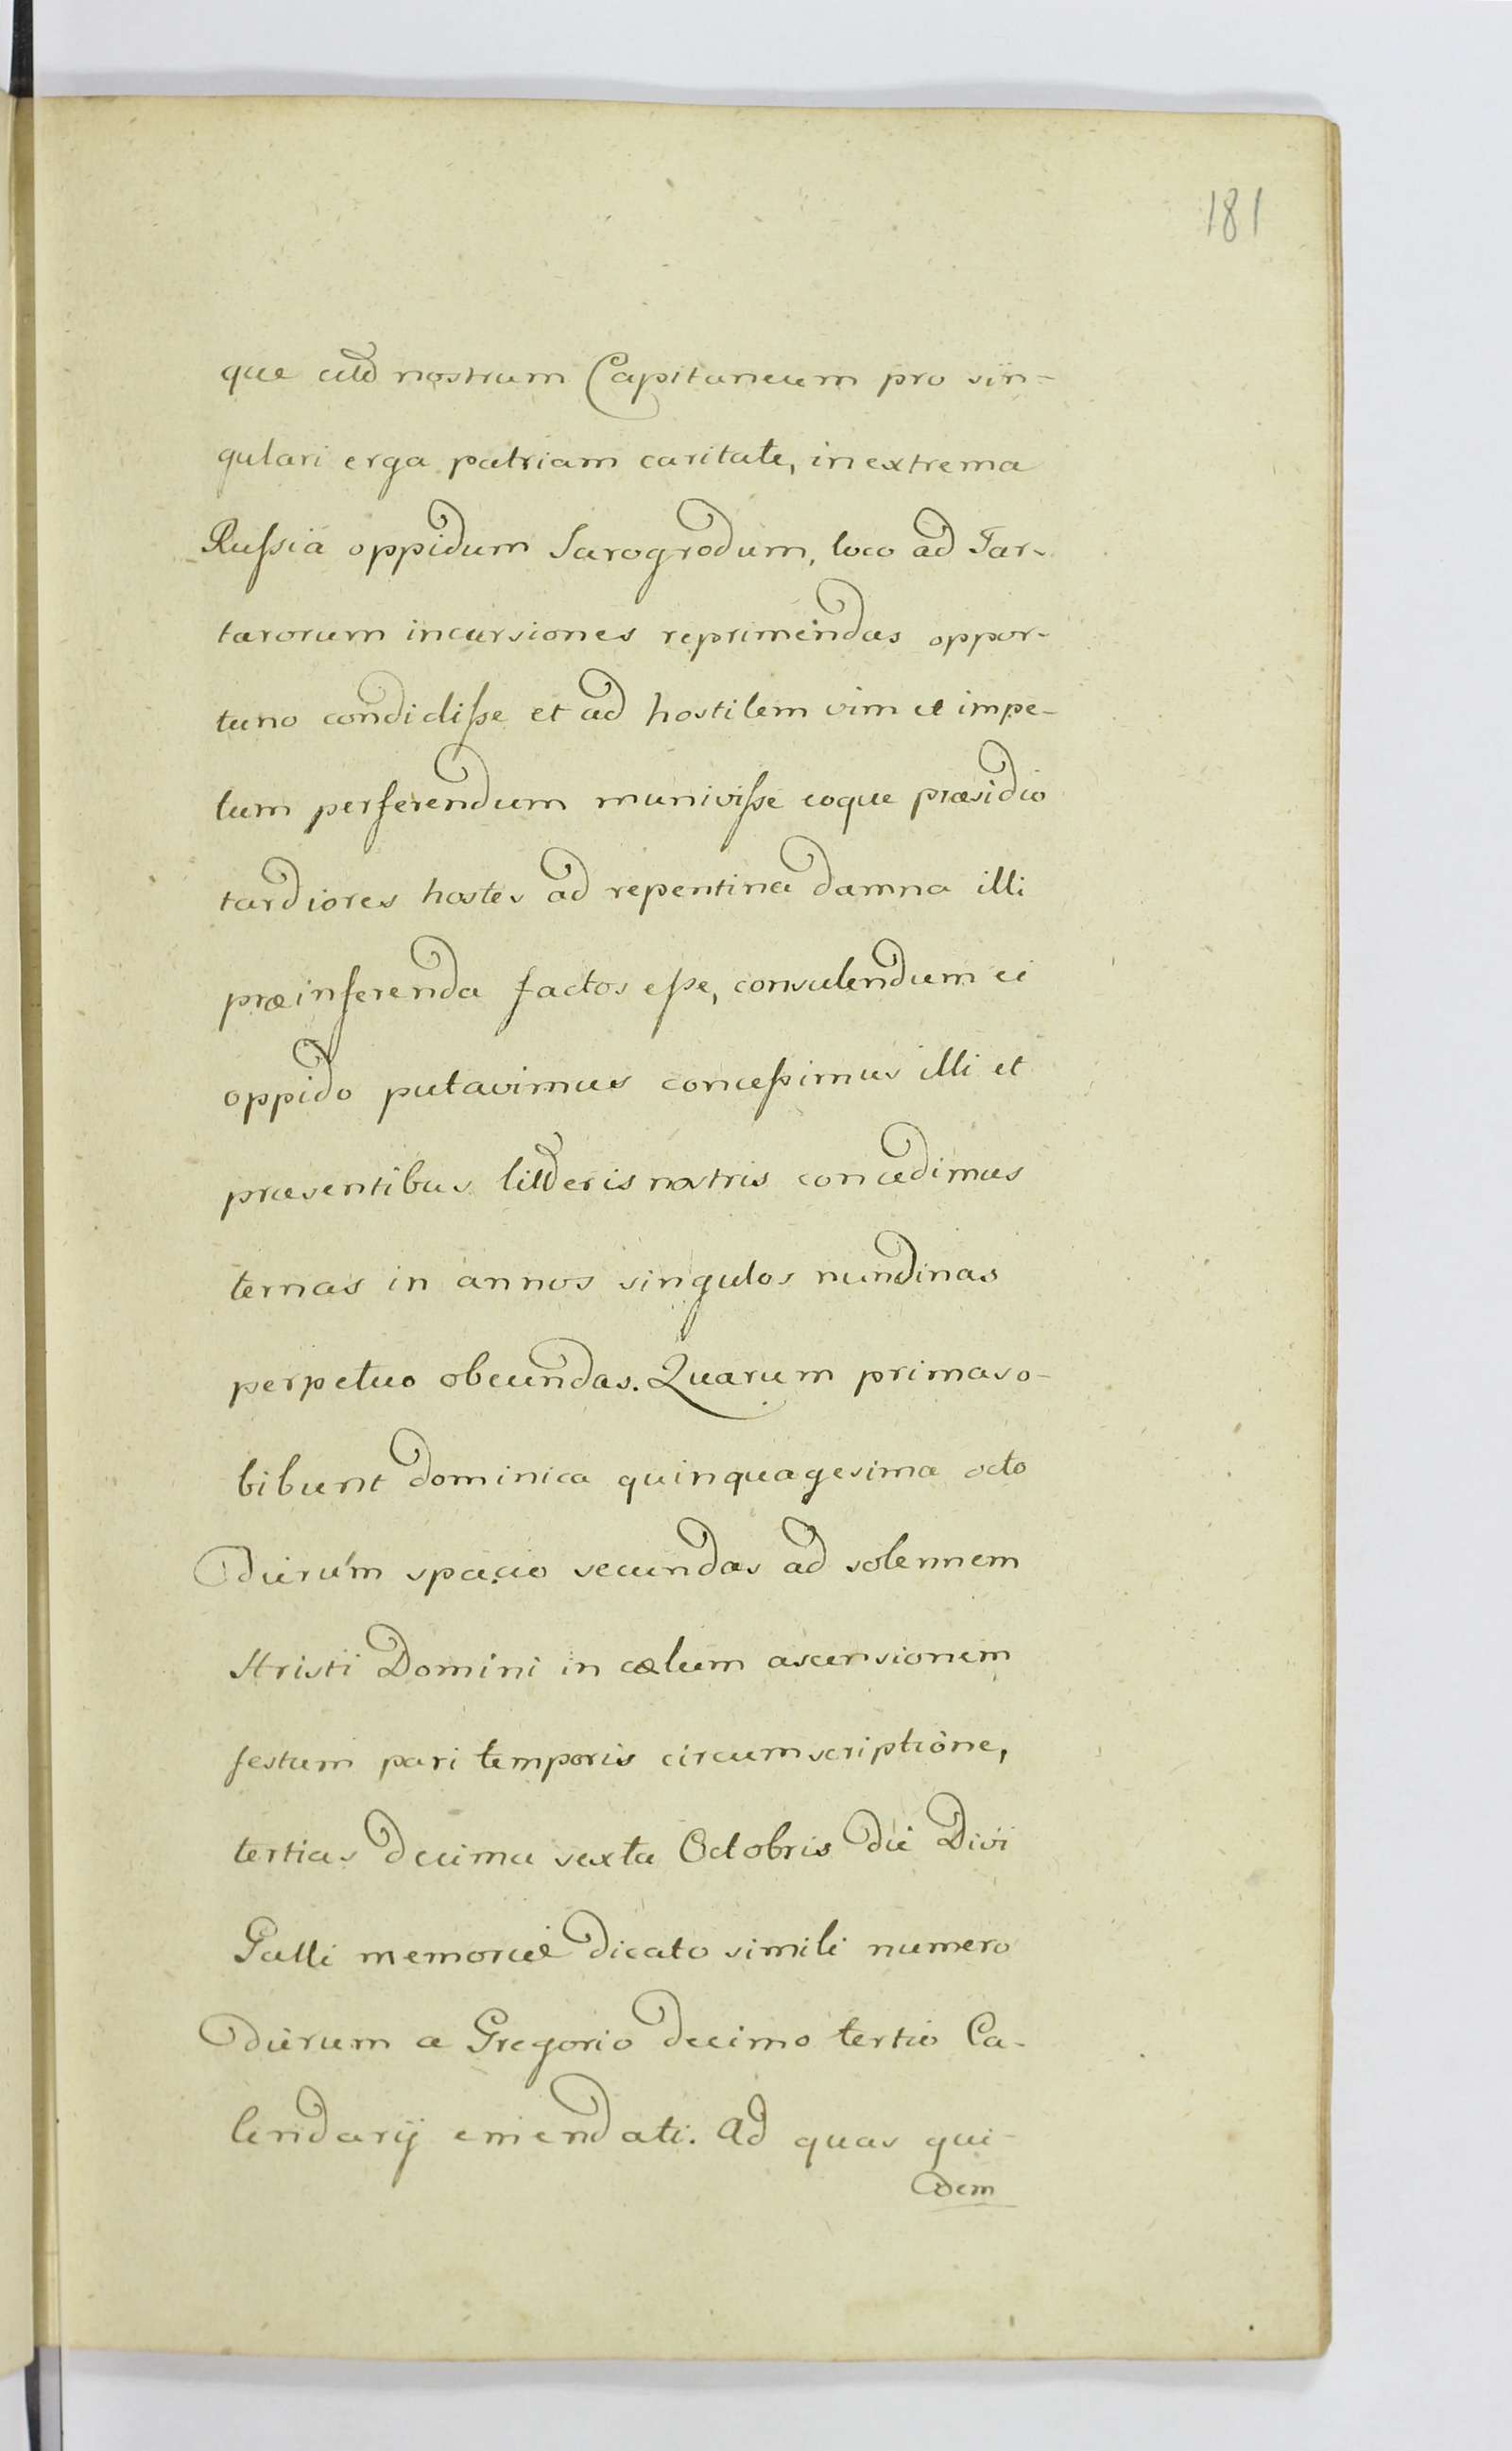 181
que ac nostrum Capitaneum pro sin-
gulari erga patriam caritate, in extrema
Rufsia oppidum Sarogrodum, loco ad Tar-
tarorum incursiones reprimendas oppor-
tuno condidifse et ad hostilem vim et impe-
tum perferendum munivifse eoque præsidio
tardiores hostes ad repentina damna illi
præinferenda factos efse, consulendum ei
oppido putavimus concefsimus illi et
præsentibus litteris nostris concedimus
ternas in annos singulos nundinas
perpetuo obeundas. Quarum primas o-
bibunt dominica quinquagesima octo
dierum spacio secundas ad solennem
Hristi Domini in cælum ascensionem
festum pari temporis circumscriptione,
tertias decima sexta Octobris die Divi
Galli memoriæ dicato simili numero
dierum a Gregorio decimo tertio Ca-
lendarij emendati. Ad quas qui-
dem